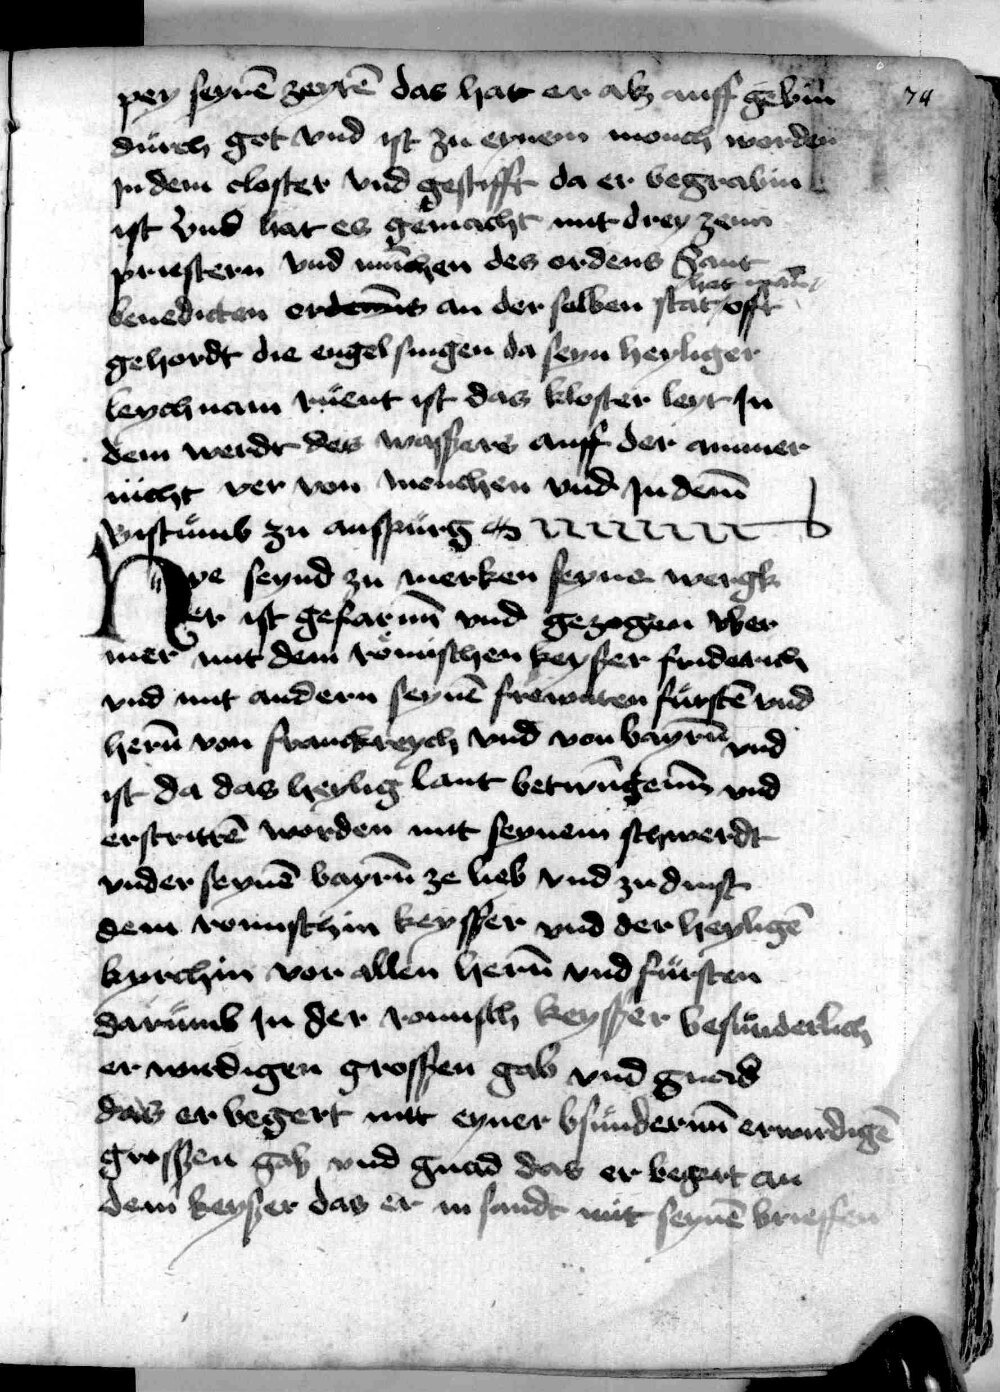 74
pey seynē zeytē das hat er als auff gebin
durch got vnd ist zu eynem monch worden
jn dem closter vnd gestifft da er begrabin
ist vnd hat es gemacht mit drey zenn
priestern vnd munchen des ordens sant
hat man
benedicten ordenns an der selben stat offt
gehordt die engel singen da seyn heyliger
leychnam ruent ist das kloster leyt jn
dem werdt des wassers auff der ammer
nicht ver von monchen vnd jn dem̄
bistumb zu auspurg
Hye seynd zu merken seyne wergk
er ist gefarnn̄ vnd gezogen vber
mer mit dem römischen keyszer friderich
vnd mit andern seynē frewnten fürstē vnd
hern̄ von franckreych vnd von bayrn̄ vnd
ist da das heylig lant betwungenn̄ vnd
erstrittē worden mit seynem schwerdt
vnder seynē bayrn̄ ze lieb vnd zu dinst
dem romischin keysser vnd der heyligē
kyrchin vor allen hern̄ vnd fürsten
darumb jn der romisch keysser besunderlich
er wirdigen grossen gab vnd gnad
das er begert mit eyner bsundernn̄ erwirdigē
groszen gab vnd gnad das er begert an
dem keyszer das er in sandt mit seynē brieffen